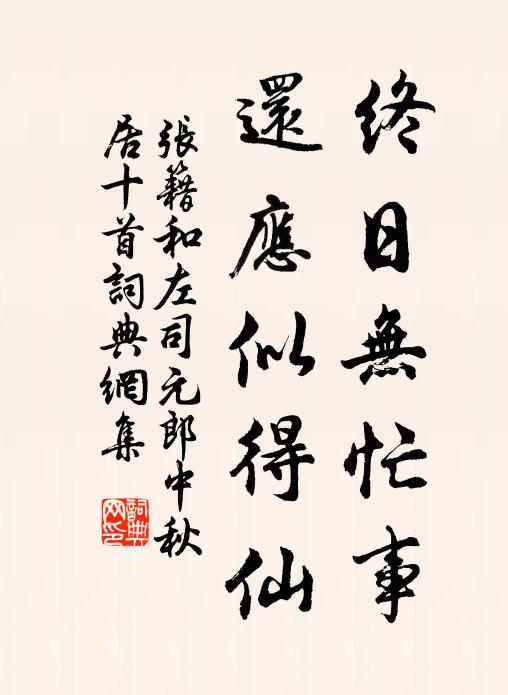 終日無忙事
還應似得仙
張籍和左司元郎中秋
居十首詞典網集
詞典
网印